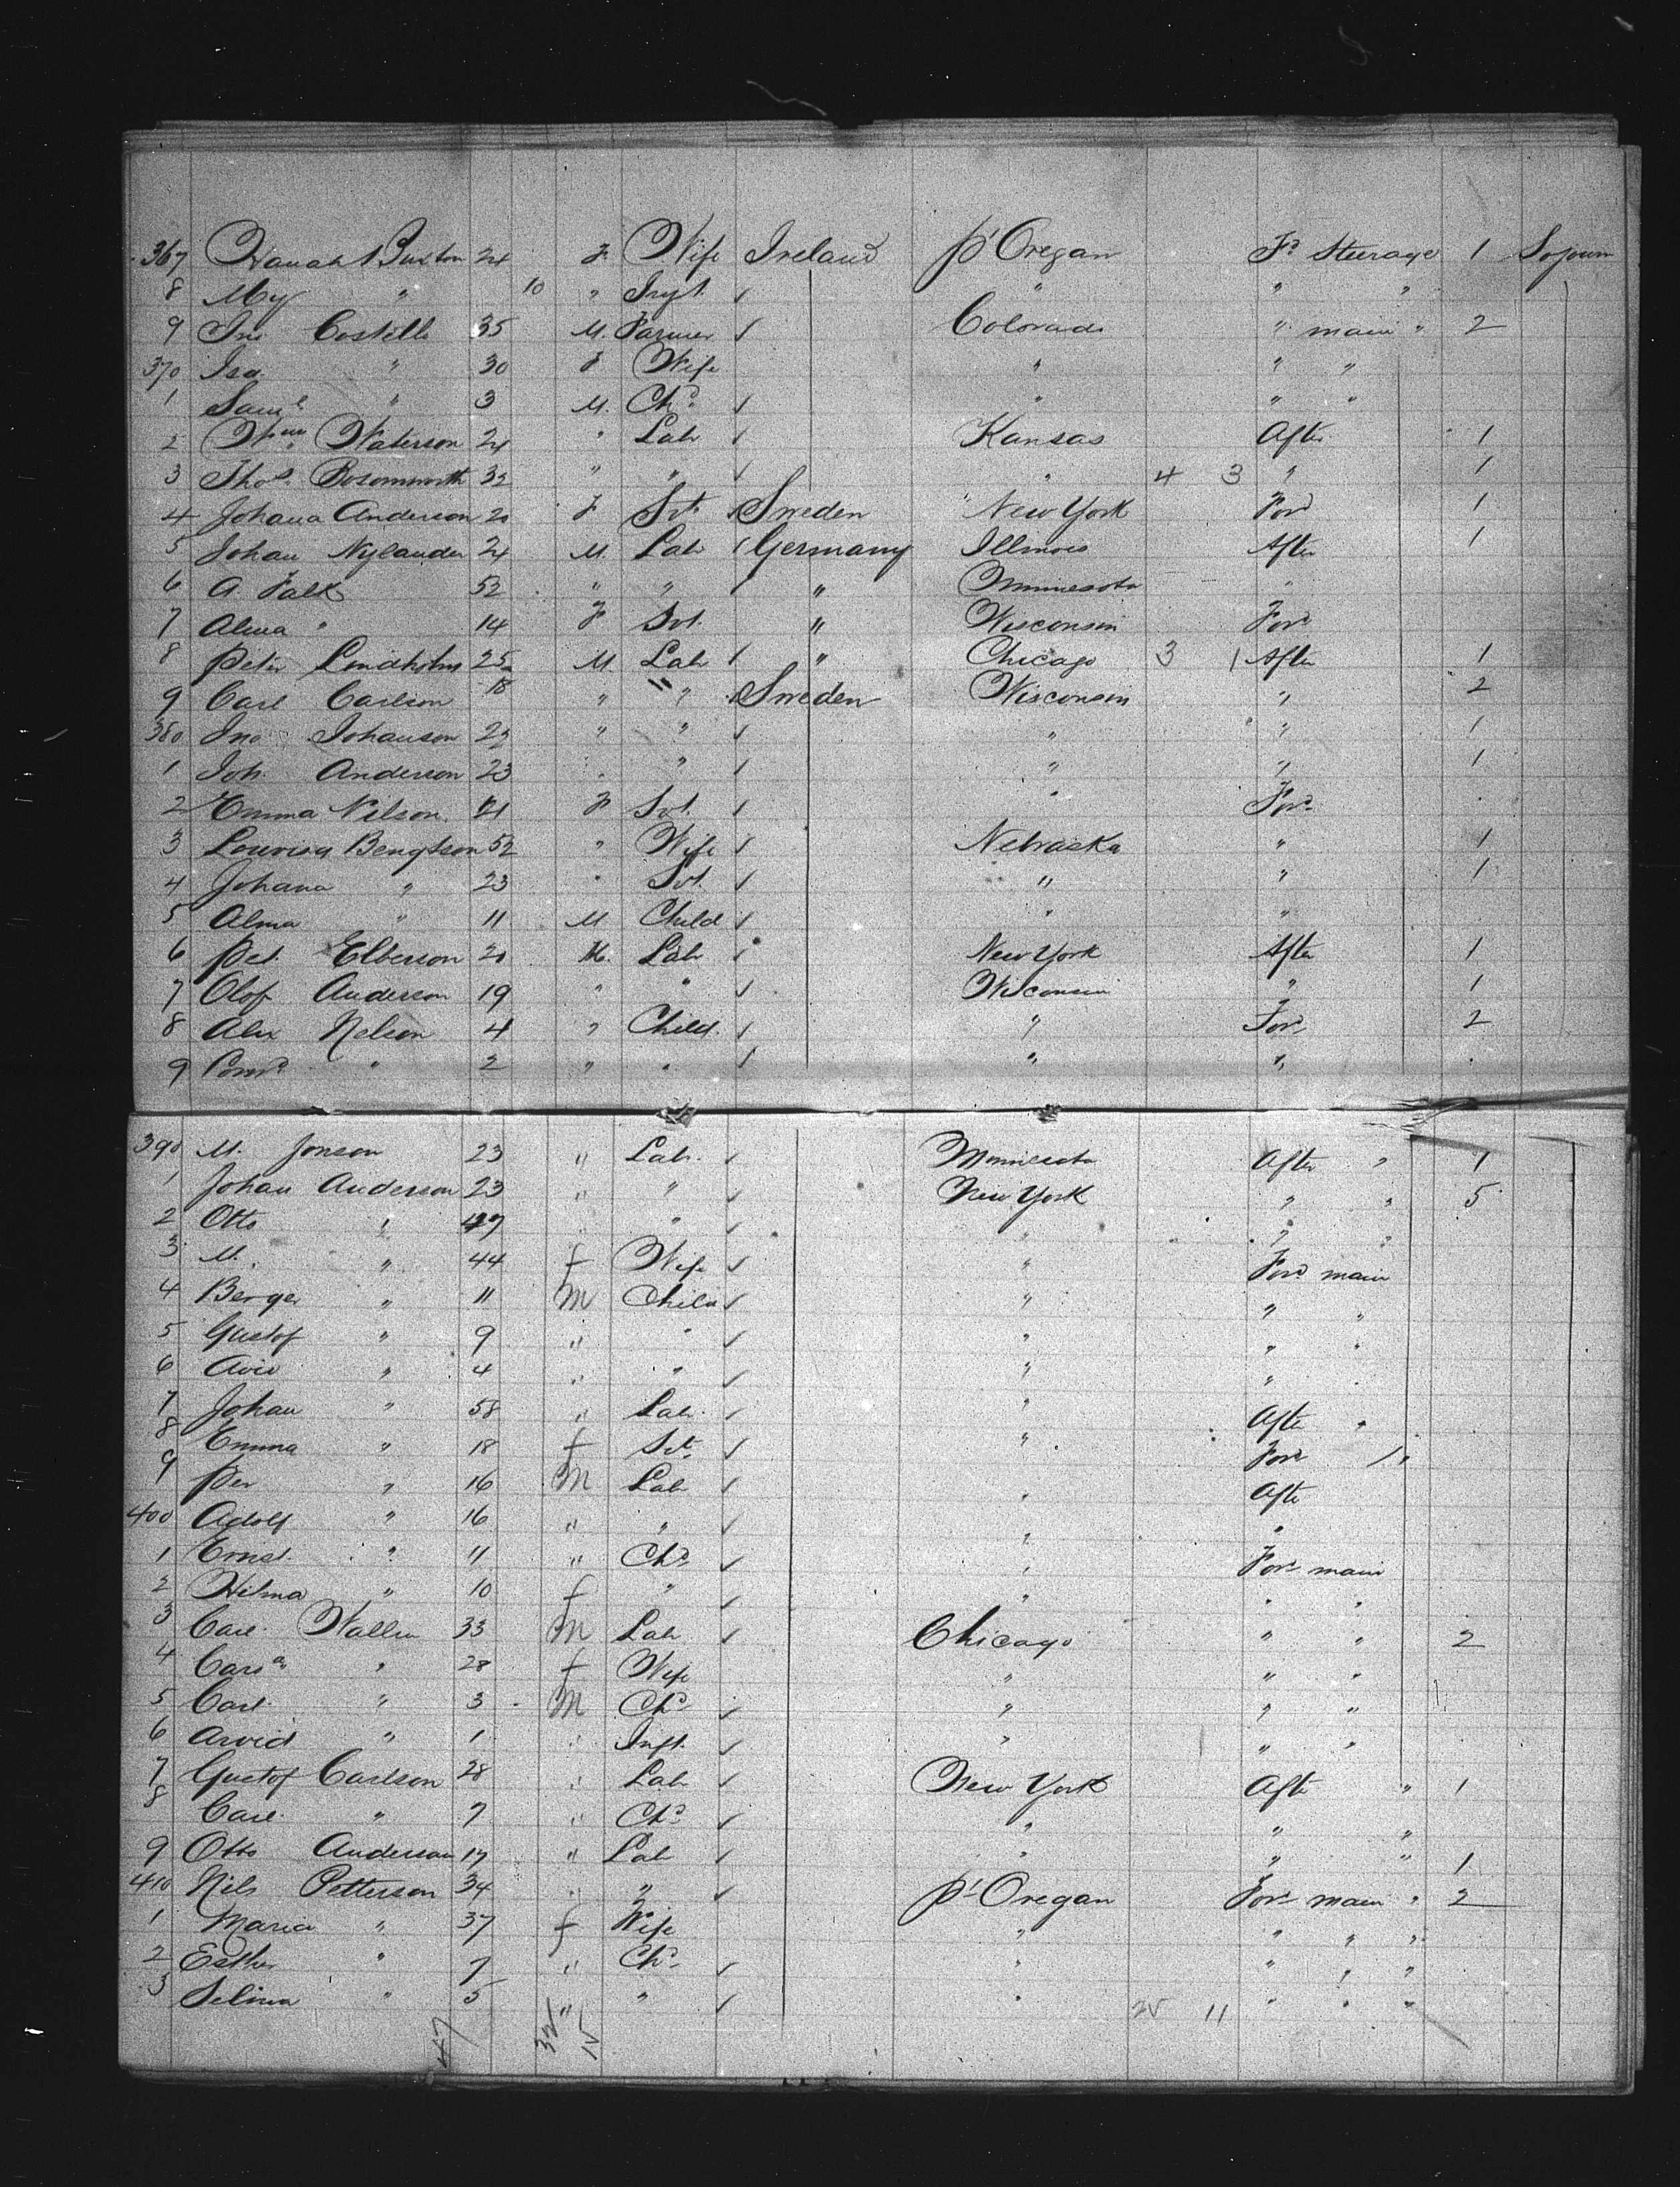 367 Hanah Buxton 24 F Wife Ireland p' Oregan Fd Steerage 1 Sojourn
8 My " 10 " Inft. " " "
9 Jno Costello 35 M. Farmer Colorado " main " 2
370 Isa. " 30 F Wife " " "
1 Saml " 3 M. Chd " " "
2 Wm Waterson 24 " Lab Kansas After 1
3 Thos. Bosomworth 32 " " " 4 3 " 1
4 Johana Anderson 20 F Svt Sweden New York Ford 1
5 Johan Nylander 24 M. Lab Germany Illinois After 1
6 A. Falk 52 " " " Minnesota "
7 Alma " 14 F Svt. " Wisconsin Ford
8 Peter Lindholm 25 M. Lab " Chicago 3 1 After 1
9 Carl Carlson 18 " " Sweden Wisconsin " 2
380 Jno Johanson 22 " " " " 1
1 Joh. Anderson 23 " " " " 1
2 Emma Nilson. 21 F Svt. " Ford
3 Louvisa Bengtson 52 " Wife Nebraska " 1
4 Johana " 23 " Svt. " " 1
5 Alma " 11 M Child " "
6 Pet. Elberson 20 M. Lab New York After 1
7 Olof Anderson 19 " " Wisconsin " 1
8 Alex Nelson 4 " Child. " Ford 2
9 " 2 " " " "
390 M. Jonson 23 " Lab. Minnesota After " 1
1 Johan Anderson 23 " " New York " " 5
2 Otto " " " " " "
3 M. " 44 f Wife " Ford main
4 Berger " 11 M Child " " "
5 Gustof " 9 " " " " "
6 " 4 " " " " "
7 Johan " 58 " Lab. " After "
8 Emma " 18 f Svt " Ford "
9 Per " 16 M Lab " After
400 Adolf " 16 " " " "
1 Ernst. " 11 " Chd " Ford main
2 Hilma " 10 f " " " "
3 Carl Wallin 33 M Lab Chicago " " 2
4 " 28 f Wife " " "
5 Carl. " 3 M Chd " " "
6 Arvid " 1 " Inft. " " "
7 Gustof Carlson 28 " Lab New York After " 1
8 Carl " 7 " Chd " " "
9 Otto Anderson 19 " Lab " " " 1
410 Nils Petterson 34 " " p' Oregan Ford main " 2
1 Maria " 37 f Wife " " " "
2 Esther " 7 " Chd " " " "
3 Selma " 5 " " " 25 11 " " "
47 32 15